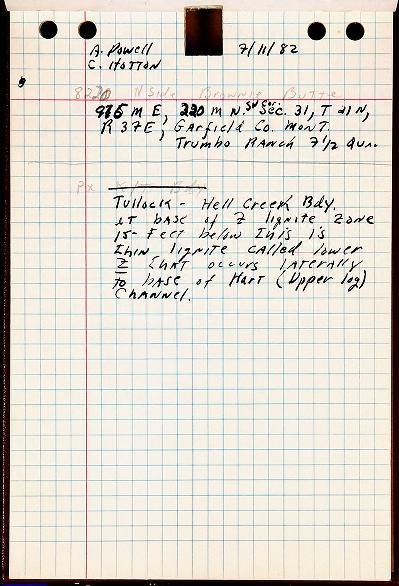 A. Powell 7/11/82
C. Hotton
8220 N Side Brownie Butte
975 m E, 220 m N. SW Cor. Sec. 31, T 21 N,
R 37 E, Garfield Co. Mont.
Trumbo Ranch 7 1/2 Qua.
Px K/T Bdy
Tullock - Hell Creek Bdy.
at base of Z lignite zone
15- Feet below this is
thin lignite called lower
Z that occurs laterally
to base of Hart (Upper log)
Channel.